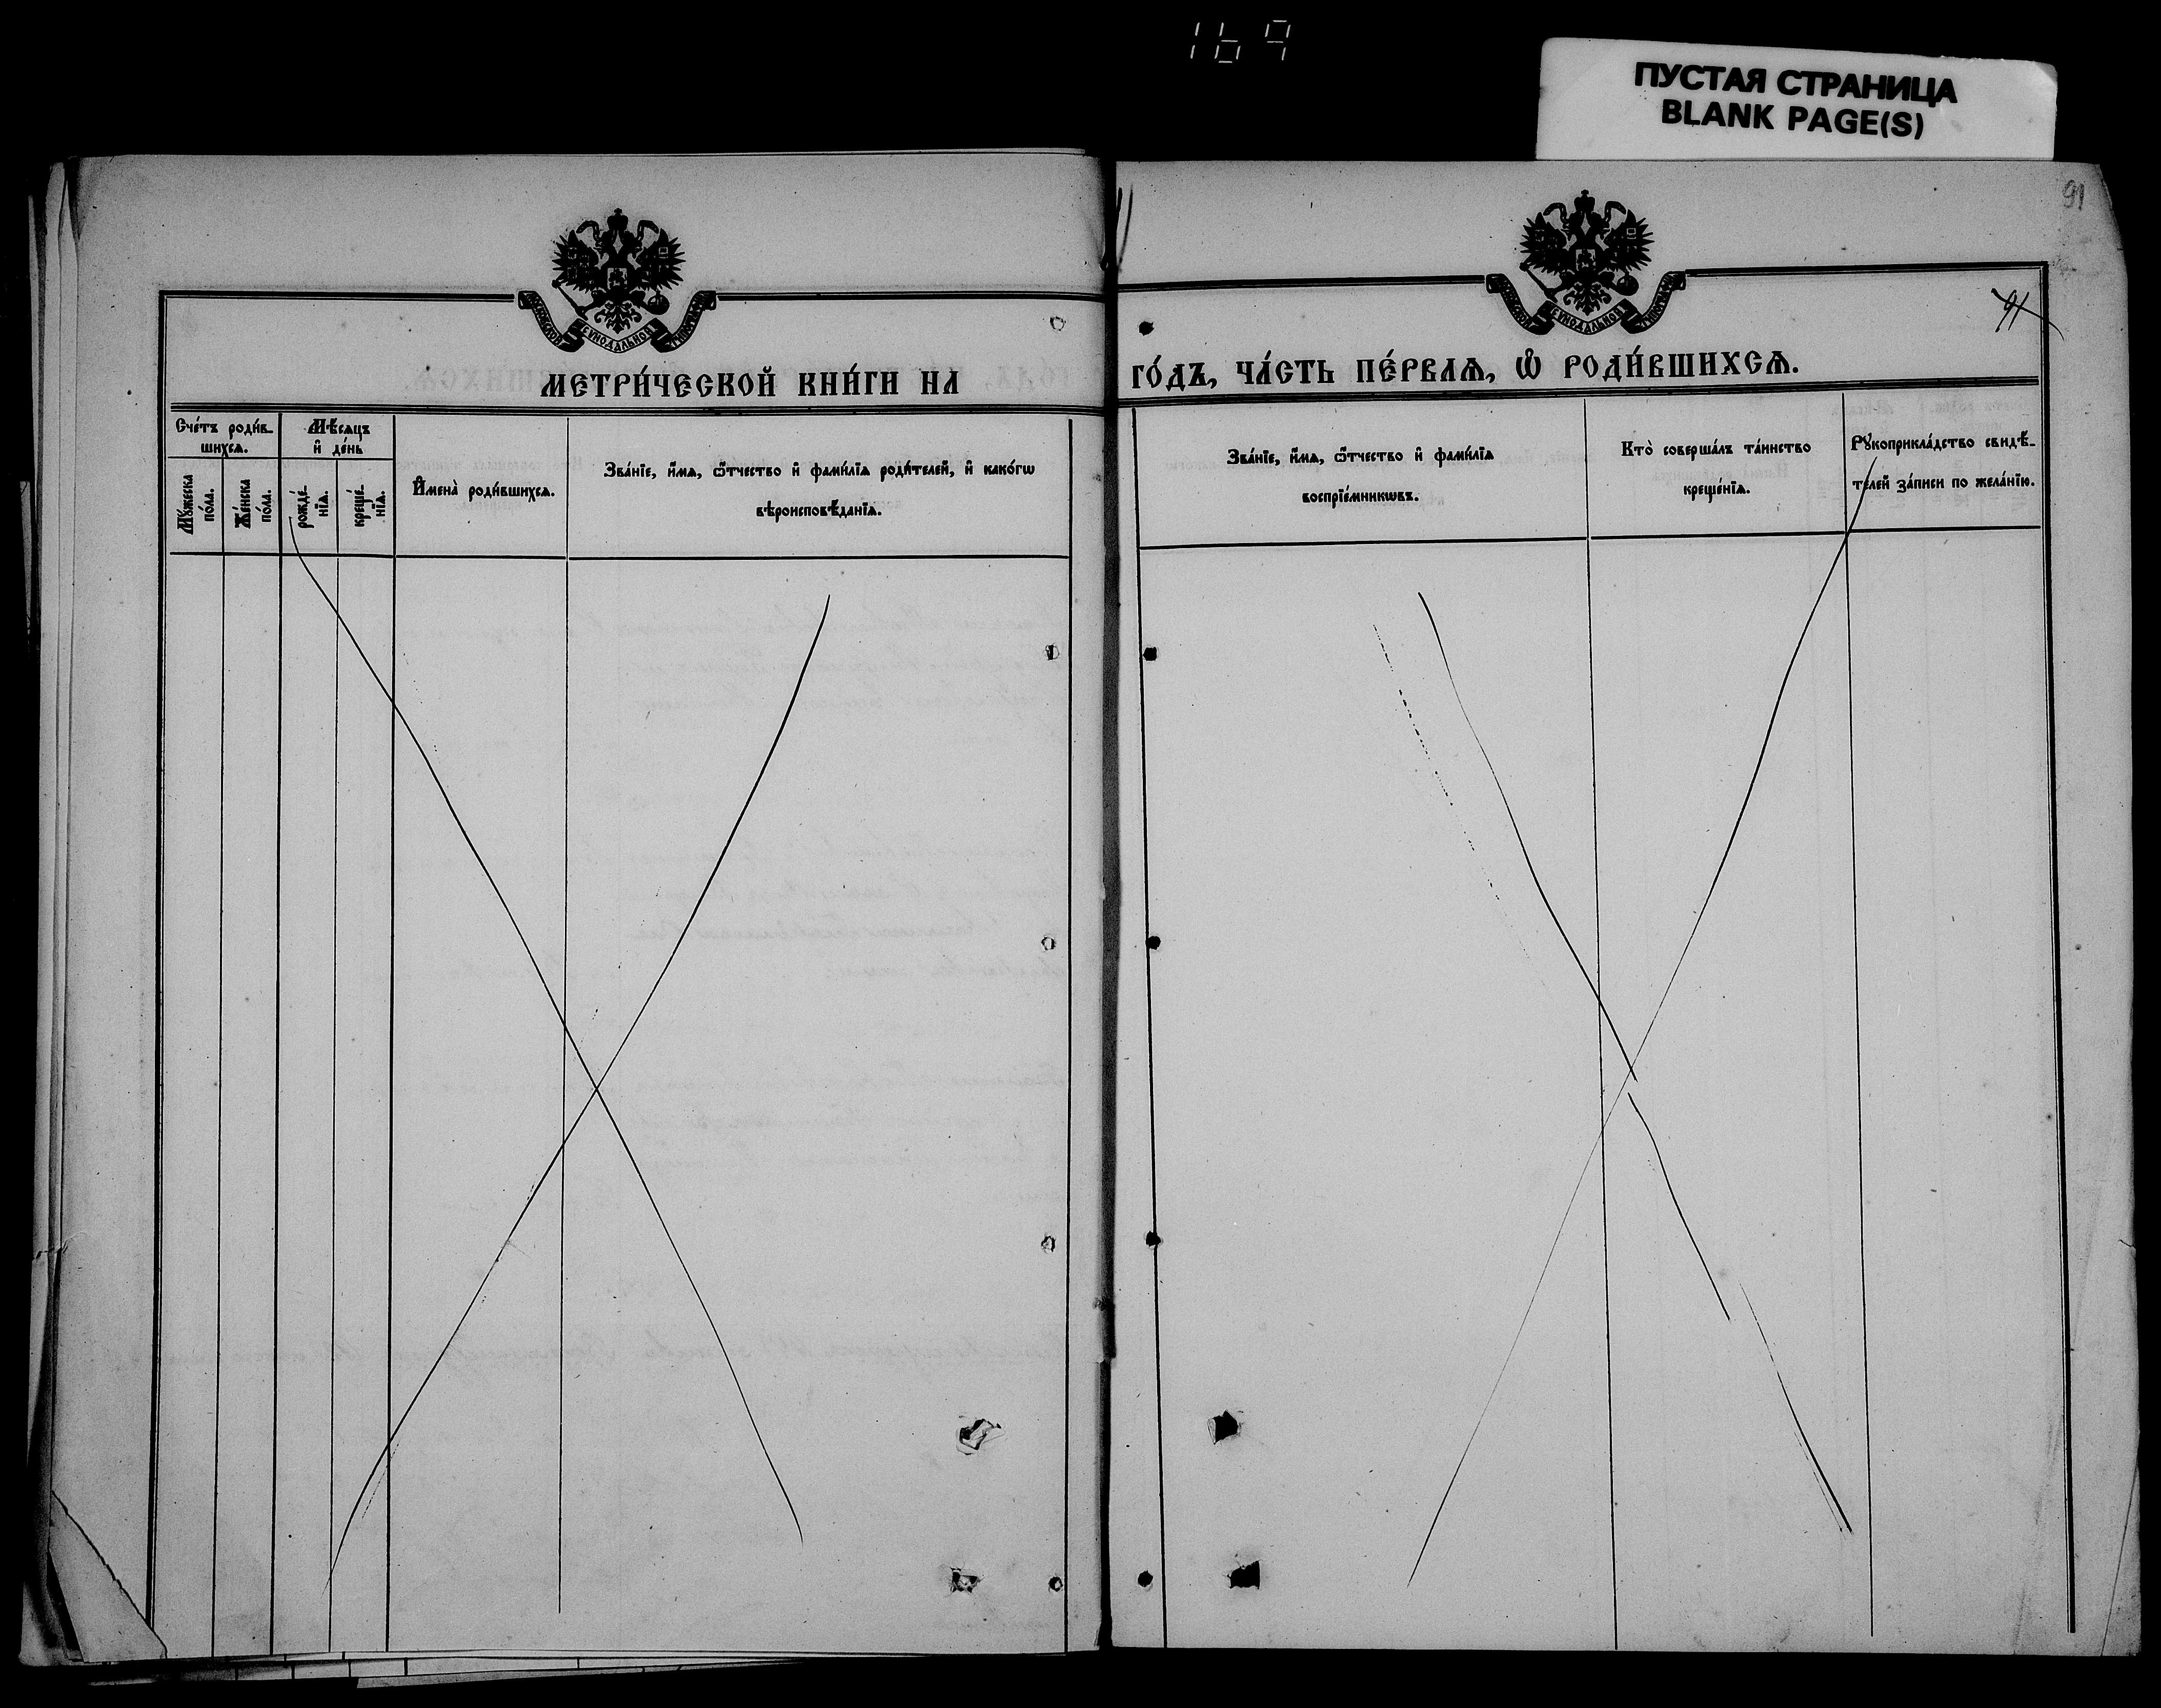 169
ПУСТАЯ СТРАНИЦА
BLANK PAGE(S)
91
91
МЕТРИ́ЧЕСКОЙ КНИ́ГИ НА
ГО́ДЪ, ЧА́СТЬ ПЕ́РВАѦ, Ѡ҆ РОДИ́ВШИХСѦ.
Сче́тъ роди́в-
шихсѧ.
Мѣ́сѧцъ
и҆ де́нь
Мꙋ́жеска
по́ла.
Же́нска
по́ла.
рожде́-
нїѧ.
креще́-
нїѧ.
И҆мена̀ роди́вшихсѧ.
Зва́нїе, и҆́мѧ, ѻ҆́тчество и҆ фами́лїѧ роди́телей, и҆ како́гѡ
вѣроисповѣ́данїѧ.
Зва́нїе, и҆́мѧ, ѻ҆́тчество и҆ фами́лїѧ
воспрїе́мникѡвъ.
Кто̀ соверша́лъ та́инство
креще́нїѧ.
Рꙋкоприкла́дство свидѣ́-
телей за́писи по жела́нїю.